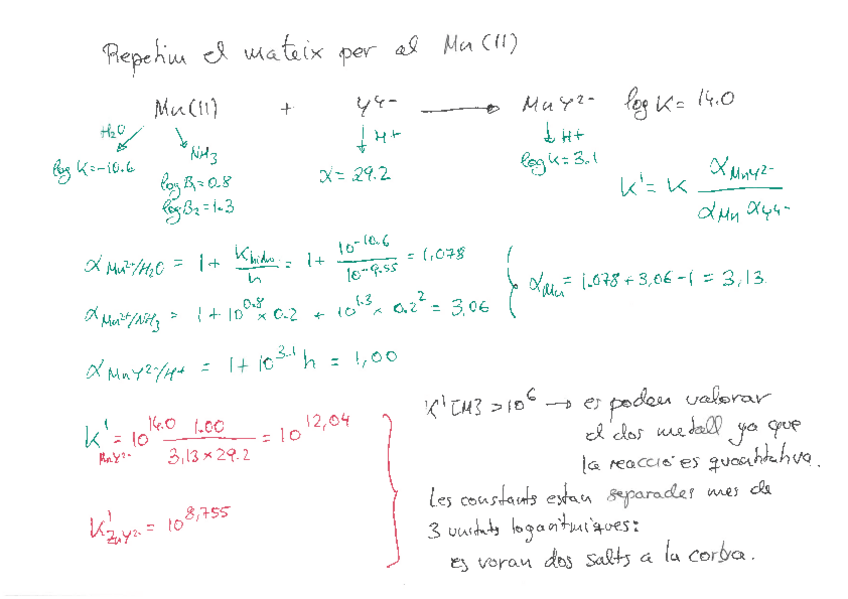 Repetim el mateix per al Mn(II)
Mn(II) + Y4- → MnY2- log K = 14.0
H2O NH3 ↓ H+ ↓ H+
log K = -10.6 log β1 = 0.8 α = 29.2 log K = 3.1
log β2 = 1.3
K' = K αMnY2- / αMn αY4-
αMn2+/H2O = 1 + Khidro / h = 1 + 10^-10.6 / 10^-9.55 = 1,078
αMn2+/NH3 = 1 + 10^0.8 × 0.2 + 10^1.3 × 0.2^2 = 3,06
αMn = 1.078 + 3,06 - 1 = 3,13
αMnY2-/H+ = 1 + 10^3.1 h = 1,00
K'MnY2- = 10^14.0 1.00 / 3,13 × 29.2 = 10^12,04
K'ZnY2- = 10^8,755
K'[M] > 10^6 → es poden valorar
el dos metall ya que
la reacció es quantitativa.
Les constants estan separades mes de
3 unitats logarítmiques:
es voran dos salts a la corba.